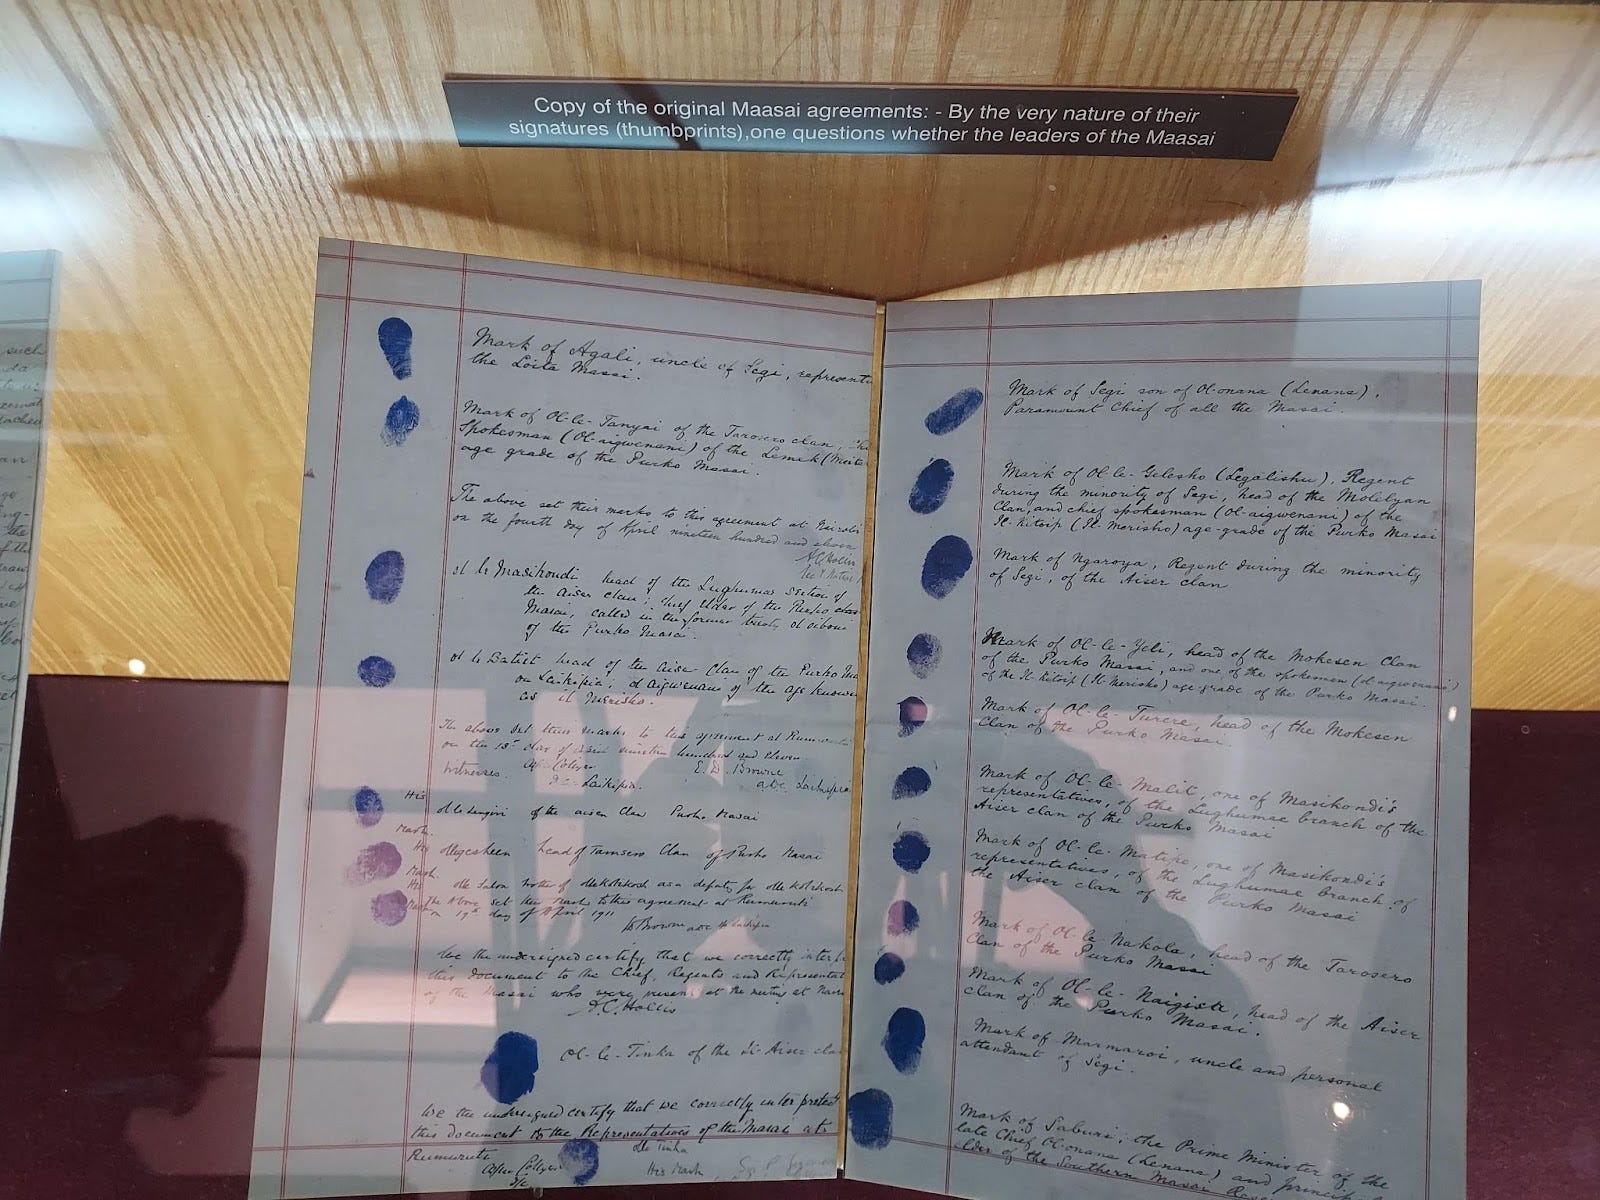 Copy of the original Maasai agreements: - By the very nature of their
signatures (thumbprints),one questions whether the leaders of the Maasai
Mark of Agali, uncle of Segi,
the Loita Masai.
Mark of Ol-le-Tanyai of the Tarosero clan,
Spokesman (Ol-aigwenani) of the Lemek
age grade of the Purko Masai.
The above set their marks to this agreement at Nairobi
on the fourth day of April nineteen hundred and eleven
A.C. Hollis
ol le Masikondi head of the Lughumae section of
the Aiser clan; Chief Elder of the Purko
Masai, called in the former treaty ol oiboni
of the Purko Masai.
ol le Batiet head of the Aiser Clan of the Purko
on Laikipia; ol aigwenani of the age known
as il Merisho.
The above set their marks to this agreement at Rumuruti
on the 13th day of April nineteen hundred and eleven
Witnesses. E. D. Browne
D.C. Laikipia. ADC. Laikipia
His of the Aiser Clan Purko Masai
Mark.
His head of Tarosero Clan of Purko Masai
Mark.
His as a deputy for
Mark The above set their marks to this agreement at Rumuruti
on 19th day of April 1911
Browne ADC Laikipia
We the undersigned certify that we correctly
this document to the Chief, Regents and
of the Masai who were present at the meeting at
A.C. Hollis
Ol-le-Tinka of the Il-Aiser clan
We the undersigned certify that we correctly interpreted
this document to the Representatives of the Masai at
Rumuruti
Ole Tinka
His Mark
Mark of Segi son of Ol-onana (Lenana),
Paramount Chief of all the Masai.
Mark of Ol-le-Gelesho (Legalishu), Regent
during the minority of Segi, head of the Molelyan
Clan, and chief spokesman (Ol-aigwenani) of the
Il-Kitoip (Il-Merisho) age-grade of the Purko Masai
Mark of Ngaroya, Regent during the minority
of Segi, of the Aiser clan
Mark of Ol-le-Yeli, head of the Mokesen Clan
of the Purko Masai, and one of the spokesmen (ol-aigwenani)
of the Il-Kitoip (Il Merisho) age grade of the Purko Masai.
Mark of Ol-le-Turere, head of the Mokesen
Clan of the Purko Masai.
Mark of Ol-le-Malit, one of Masikondi's
representatives, of the Lughumae branch of the
Aiser clan of the Purko Masai
Mark of Ol-le-Matipe, one of Masikondi's
representatives, of the Lughumae branch of
the Aiser clan of the Purko Masai
Mark of Ol-le-Nakola, head of the Tarosero
Clan of the Purko Masai
Mark of Ol-le-Naigisa, head of the Aiser
clan of the Purko Masai.
Mark of Marmaroi, uncle and personal
attendant of Segi.
Mark of Saburi, the Prime Minister of the
late Chief Ol-onana (Lenana) and
elder of the Southern Masai